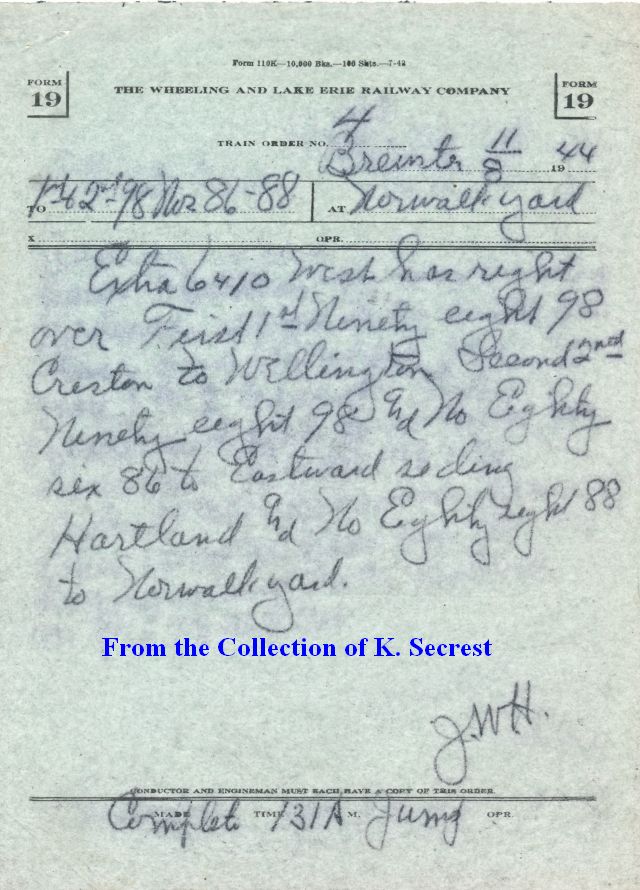 Form 110K—10,000 Bks.—100 Shts.—7-42
FORM 19
THE WHEELING AND LAKE ERIE RAILWAY COMPANY
FORM 19
TRAIN ORDER NO. 4
Brewster 11/8 1944
TO 1st & 2nd 98 Nos 86-88 AT Norwalk yard
X OPR.
Extra 6410 West has right
over First 1st Ninety eight 98
Creston to Wellington Second 2nd
Ninety eight 98 & No Eighty
six 86 to Eastward siding
Hartland & No Eighty eight 88
to Norwalk yard.
From the Collection of K. Secrest
J.W.H.
CONDUCTOR AND ENGINEMAN MUST EACH HAVE A COPY OF THIS ORDER.
MADE Complete TIME 131A M. OPR.